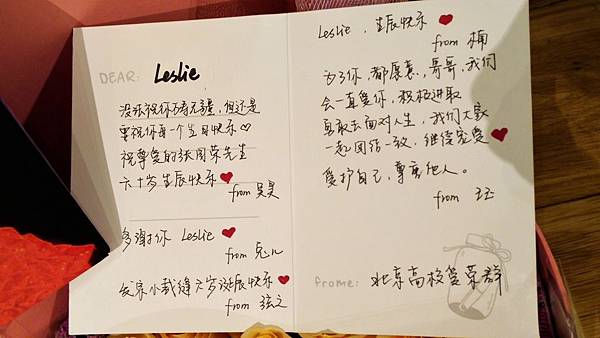 DEAR: Leslie
没法祝你万寿无疆，但还是
要祝你每一个生日快乐♡
祝尊爱的张国荣先生
六十岁生辰快乐❤
from
多谢你 Leslie ❤
from
小裁缝六岁诞辰快乐❤
from 弦之
Leslie，生辰快乐❤
from 桶
为了你，都愿意，哥哥，我们
会一直爱你，积极进取
勇敢去面对人生，我们大家
一起团结一致，继续宠爱❤
爱护自己，尊重他人。
from
frome: 北京高校爱荣群